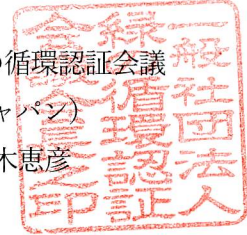 の循環認証会議
ャパン)
木恵彦
一般社団法人
緑の循環認証